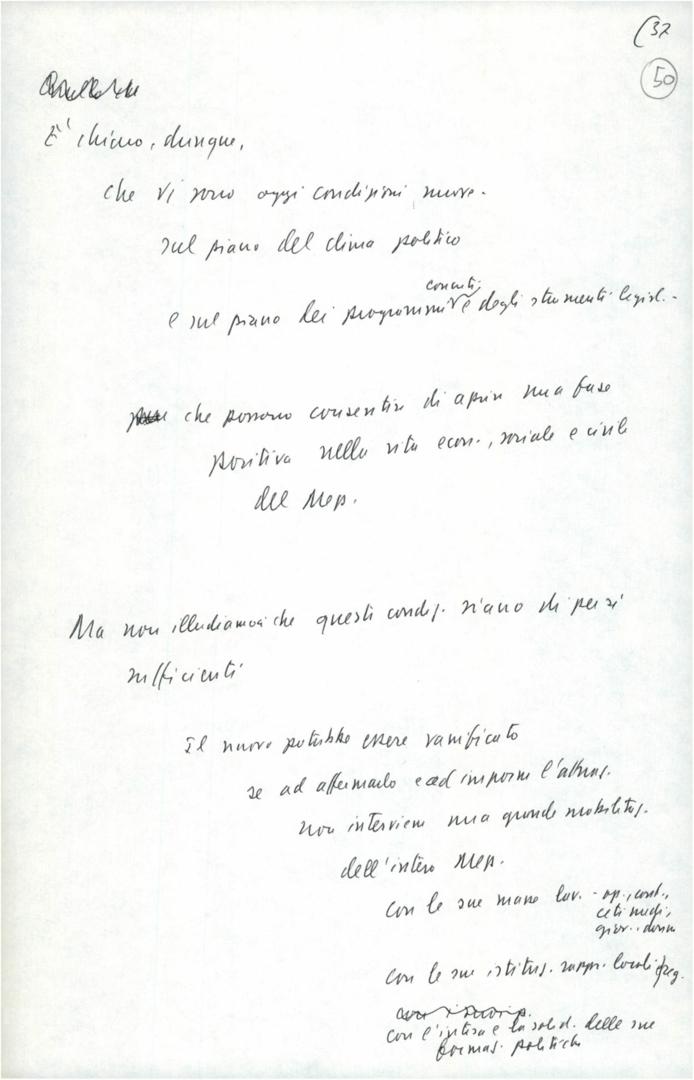 (37
50
E' chiaro, dunque,
che vi sono oggi condizioni nuove -
sul piano del clima politico
concreti
e sul piano dei programmi e degli strumenti legisl. -
che possono consentire di aprire una fase
positiva nella vita econ., sociale e civile
del Mezz.
Ma non illudiamoci che questi condiz. siano di per sé
sufficienti
Il nuovo potrebbe essere vanificato
se ad affermarlo e ad imporne l'attuaz.
non interviene una grande mobilitaz.
dell'intero Mezz.
con le sue masse lav. - op., cont.,
ceti medi,
giov., donne
con le sue istituz. rappr. locali e reg.
con l'intesa e la solid. delle sue
formaz. politiche